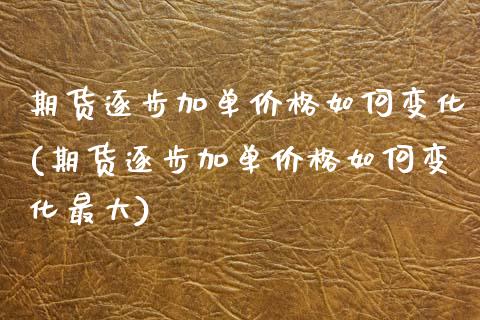 期货逐步加单价格如何变化
(期货逐步加单价格如何变
化最大)